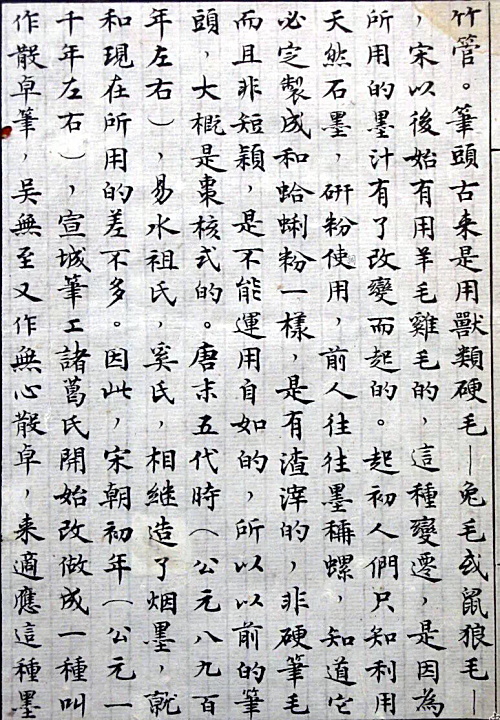 竹管。筆頭古来是用獸類硬毛—兔毛或鼠狼毛—
，宋以後始有用羊毛雞毛的，這種變遷，是因為
所用的墨汁有了改變而起的。起初人們只知利用
天然石墨，研粉使用，前人往往墨稱螺，知道它
必定製成和蛤蜊粉一樣，是有渣滓的，非硬筆毛
而且非短穎，是不能運用自如的，所以以前的筆
頭，大概是棗核式的。唐末五代時（公元八九百
年左右），易水祖氏，奚氏，相継造了烟墨，就
和現在所用的差不多。因此，宋朝初年（公元一
千年左右），宣城筆工諸葛氏開始改做成一種叫
作散卓筆，吳無至又作無心散卓，来適應這種墨